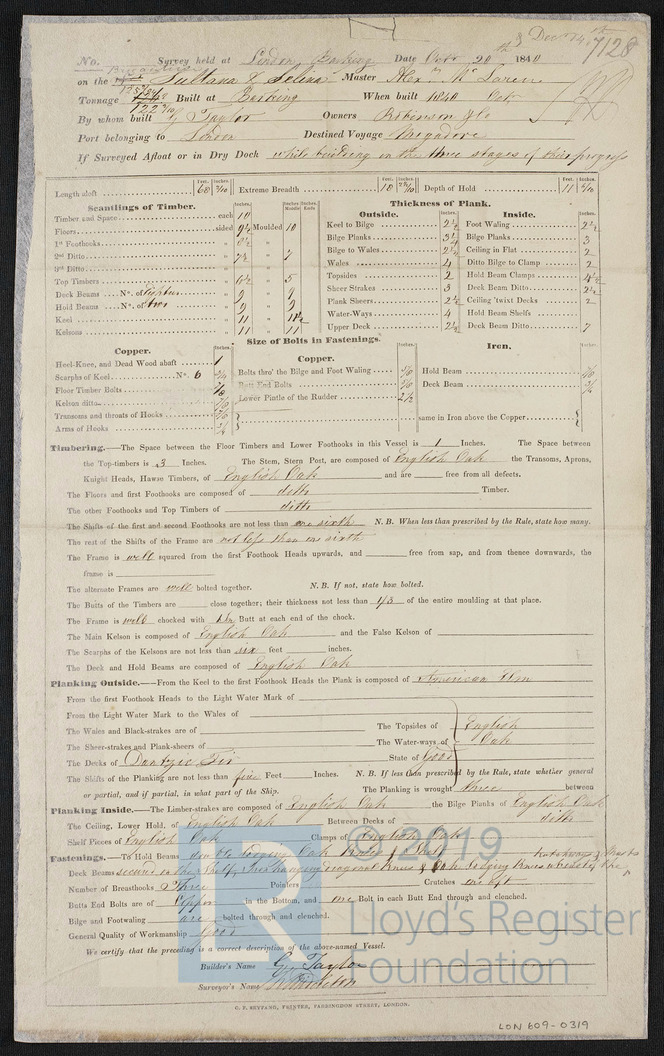 8 Dec 14th
7128
No. Survey held at London, Barking Date Octr 20th 1840
Brigantine
on the Sultana & Selina Master Alexr Mc Laren
Tonnage 122 Built at Barking When built 1840 Oct
By whom built G Taylor Owners Robinson & Co
Port belonging to London Destined Voyage Mogadore
If Surveyed Afloat or in Dry Dock while building on the three stages of their progress
Length aloft 68 Feet. Inches. Extreme Breadth 18 Feet. Inches. Depth of Hold 11 Feet. Inches.
Scantlings of Timber.
Inches. Inches Middle Inches Ends
Timber and Space each 10
Floors sided 9½ Moulded 10
1st Foothooks 8½ "
2nd Ditto 7½ " 7
3rd Ditto "
Top Timbers 6½ " 5
Deck Beams No. of 9 " 9
Hold Beams No. of two 9 " 9
Keel 11 " 11½
Kelsons 11 " 11
Thickness of Plank.
Outside. Inches.
Keel to Bilge 2½
Bilge Planks 3¼
Bilge to Wales 2½
Wales 4
Topsides 2
Sheer Strakes 3
Plank Sheers 2½
Water-Ways 4
Upper Deck 2½
Inside. Inches.
Foot Waling 2½
Bilge Planks 3
Ceiling in Flat 2
Ditto Bilge to Clamp 2
Hold Beam Clamps
Deck Beam Ditto 2½
Ceiling 'twixt Decks 2
Hold Beam Shelfs
Deck Beam Ditto 7
Size of Bolts in Fastenings.
Copper. Inches.
Heel-Knee, and Dead Wood abaft 1
Scarphs of Keel No. 6
Floor Timber Bolts
Kelson ditto
Transoms and throats of Hooks
Arms of Hooks
Copper. Inches.
Bolts thro' the Bilge and Foot Waling
Butt End Bolts
Lower Pintle of the Rudder 2½
Iron. Inches.
Hold Beam
Deck Beam ¾
same in Iron above the Copper
Timbering.—The Space between the Floor Timbers and Lower Foothooks in this Vessel is 1 Inches. The Space between
the Top-timbers is 3 Inches. The Stem, Stern Post, are composed of English Oak the Transoms, Aprons,
Knight Heads, Hawse Timbers, of English Oak and are free from all defects.
The Floors and first Foothooks are composed of ditto Timber.
The other Foothooks and Top Timbers of ditto
The Shifts of the first and second Foothooks are not less than one sixth N.B. When less than prescribed by the Rule, state how many.
The rest of the Shifts of the Frame are not less than one sixth
The Frame is well squared from the first Foothook Heads upwards, and free from sap, and from thence downwards, the
frame is
The alternate Frames are well bolted together. N.B. If not, state how bolted.
The Butts of the Timbers are close together; their thickness not less than 1/3 of the entire moulding at that place.
The Frame is well chocked with Butt at each end of the chock.
The Main Kelson is composed of English Oak and the False Kelson of
The Scarphs of the Kelsons are not less than six feet inches.
The Deck and Hold Beams are composed of English Oak
Planking Outside.—From the Keel to the first Foothook Heads the Plank is composed of American Elm
From the first Foothook Heads to the Light Water Mark of
From the Light Water Mark to the Wales of
The Wales and Black-strakes are of The Topsides of English
The Sheer-strakes and Plank-sheers of The Water-ways of Oak
The Decks of Dantzic Fir State of Good
The Shifts of the Planking are not less than five Feet Inches. N.B. If less than prescribed by the Rule, state whether general
or partial, and if partial, in what part of the Ship. The Planking is wrought three between
Planking Inside.—The Limber-strakes are composed of English Oak the Bilge Planks of English Oak
The Ceiling, Lower Hold, of English Oak Between Decks of ditto
Shelf Pieces of English Oak Clamps of English Oak
Fastenings.—To Hold Beams double Lodging Oak Knees & Bolts
Deck Beams secured to the Shelf, Iron hanging Knees & Oak Lodging Knees
Number of Breasthooks Three Pointers Crutches one
Butts End Bolts are of Copper in the Bottom, and one Bolt in each Butt End through and clenched.
Bilge and Footwaling are bolted through and clenched.
General Quality of Workmanship Good
We certify that the preceding is a correct description of the above-named Vessel.
Builder's Name G. Taylor
Surveyor's Name
G. F. SEYFANG, PRINTER, FARRINGDON STREET, LONDON.
© 2019
Lloyd's Register
Foundation
LON 609-0319